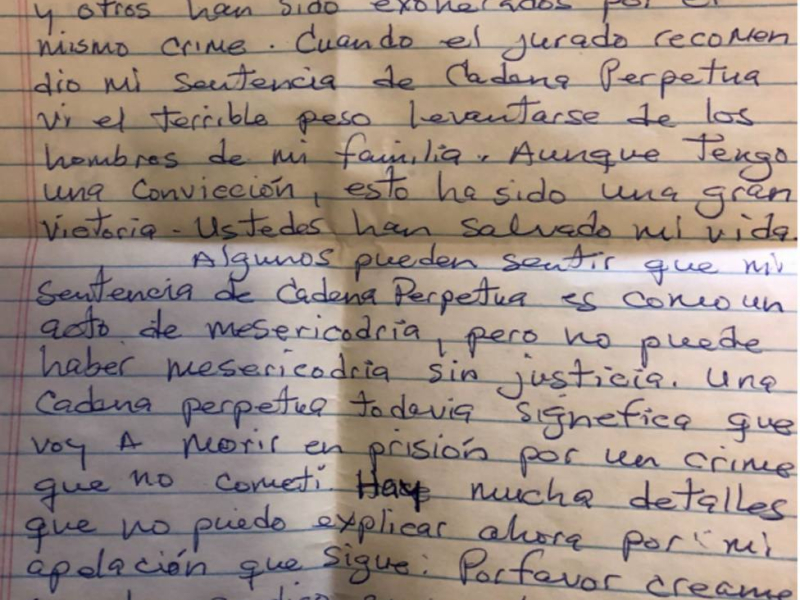 y otros han sido exonerados por el
mismo crime. Cuando el jurado recomen
dio mi sentencia de Cadena Perpetua
vi el terrible peso levantarse de los
hombres de mi familia. Aunque Tengo
una Convicción, esto ha sido una gran
Victoria - Ustedes han salvado mi vida.
Algunos pueden sentir que mi
sentencia de Cadena Perpetua es como un
acto de mesericodria, pero no puede
haber mesericodria sin justicia. Una
Cadena perpetua todavia signefica que
voy A morir en prisión por un crime
que no cometi. Hay mucha detalles
que no puedo explicar ahora por mi
apelación que sigue. Porfavor creame